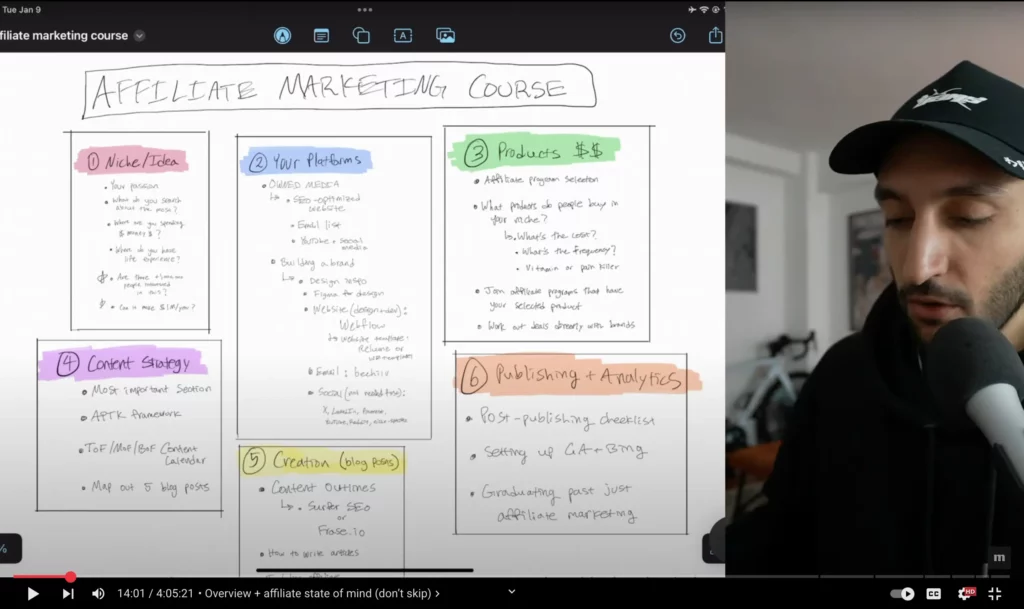 Tue Jan 9
ffiliate marketing course
AFFILIATE MARKETING COURSE
① Niche/Idea
• Your passion
• What do you search
about the most?
• Where are you spending
$ money $?
• Where do you have
life experience?
• Are there
people interested
in this?
② Your Platforms
• OWNED MEDIA
↳ • SEO-optimized
website
• Email list
• YouTube + social
media
• Building a brand
↳ • Design
• Figma for design
• Website (design + dev):
Webflow
↳ website template:
Relume or
• Email : beehiiv
• Social
X, LinkedIn, Pinterest,
YouTube, Reddit,
③ Products $$
• Affiliate program selection
• What products do people buy in
your niche?
↳ • What's the cost?
• What's the frequency?
• Vitamin or pain killer
• Join affiliate programs that have
your selected product
• Work out deals directly with brands
④ Content Strategy
• Most important section
• APTK framework
• ToF/MoF/BoF Content
Calendar
• Map out 5 blog posts
⑤ Creation (blog posts)
• Content Outlines
↳ • Surfer SEO
or
Frase.io
• How to write articles
⑥ Publishing + Analytics
• Post-publishing checklist
• Setting up GA + Bing
• Graduating past just
affiliate marketing
%
A
m
14:01 / 4:05:21 • Overview + affiliate state of mind (don't skip) >
CC
HD